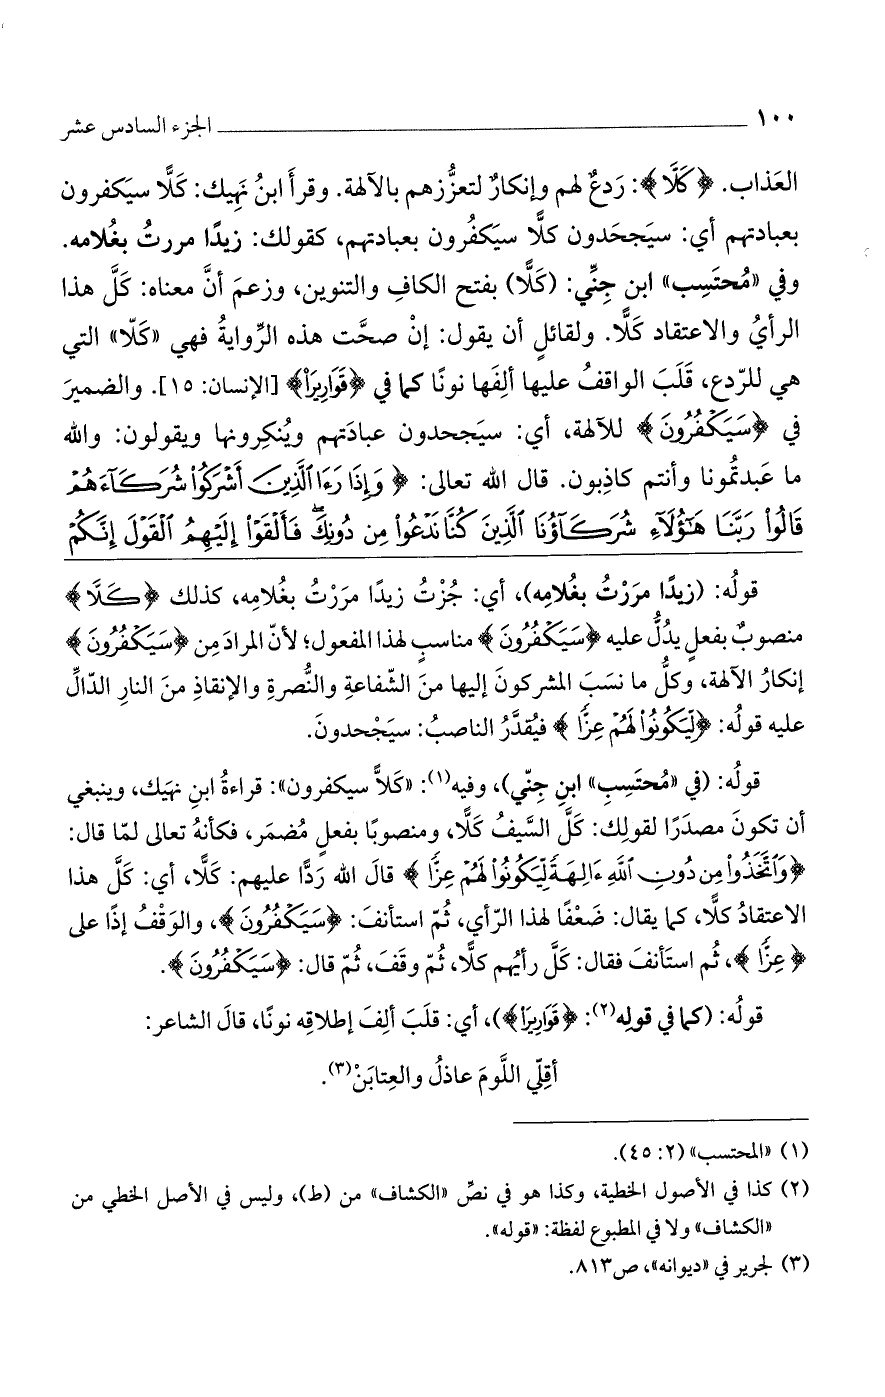 ١٠٠ الجزء السادس عشر
العَذاب. ﴿كَلَّا﴾: رَدعٌ لهم وإنكارٌ لتعزُّزهم بالآلهة. وقرأَ ابنُ نَهِيك: كَلًّا سيَكفرون
بعبادتهم أي: سيَجحَدون كلًّا سيَكفُرون بعبادتهم، كقولك: زيدًا مررتُ بغُلامه.
وفي «مُحتَسِب» ابن جِنِّي: (كَلًّا) بفتح الكافِ والتنوين، وزعمَ أنَّ معناه: كَلَّ هذا
الرأيُ والاعتقاد كَلًّا. ولقائلٍ أن يقول: إنْ صحَّت هذه الرِّوايةُ فهي «كَلّا» التي
هي للرّدع، قَلَبَ الواقفُ عليها ألِفَها نونًا كما في ﴿قَوَارِيرَاْ﴾ [الإنسان: ١٥]. والضميرَ
في ﴿سَيَكۡفُرُونَ﴾ للآلهة، أي: سيَجحدون عبادَتهم ويُنكِرونها ويقولون: والله
ما عَبدتمُّونا وأنتم كاذِبون. قال الله تعالى: ﴿وَإِذَا رَءَا ٱلَّذِينَ أَشۡرَكُواْ شُرَكَآءَهُمۡ
قَالُواْ رَبَّنَا هَٰٓؤُلَآءِ شُرَكَآؤُنَا ٱلَّذِينَ كُنَّا نَدۡعُواْ مِن دُونِكَۖ فَأَلۡقَوۡاْ إِلَيۡهِمُ ٱلۡقَوۡلَ إِنَّكُمۡ
قولُه: (زيدًا مرَرْتُ بغُلامِه)، أي: جُزْتُ زيدًا مرَرْتُ بغُلامِه، كذلك ﴿كَلَّا﴾
منصوبٌ بفعلٍ يدُلُّ عليه ﴿سَيَكۡفُرُونَ﴾ مناسبٍ لهذا المفعول؛ لأنّ المرادَ مِن ﴿سَيَكۡفُرُونَ﴾
إنكارُ الآلهة، وكلُّ ما نسَبَ المشركونَ إليها منَ الشّفاعةِ والنُّصرةِ والإنقاذِ منَ النارِ الدّالِّ
عليه قولُه: ﴿لِّيَكُونُواْ لَهُمۡ عِزّٗا﴾ فيُقدَّرُ الناصبُ: سيَجْحدونَ.
قولُه: (في «مُحتَسِبِ» ابنِ جِنّي)، وفيه(١): «كَلاًّ سيكفرون»: قراءةُ ابنِ نهَيك، وينبغي
أن تكونَ مصدَرًا لقولِك: كَلَّ السَّيفُ كَلًّا، ومنصوبًا بفعلٍ مُضمَر، فكأنهُ تعالى لمّا قال:
﴿وَٱتَّخَذُواْ مِن دُونِ ٱللَّهِ ءَالِهَةٗ لِّيَكُونُواْ لَهُمۡ عِزّٗا﴾ قالَ الله ردًّا عليهم: كَلًّا، أي: كَلَّ هذا
الاعتقادُ كلًّا، كما يقال: ضَعْفًا لهذا الرّأي، ثُمّ استأنفَ: ﴿سَيَكۡفُرُونَ﴾، والوَقْفُ إذًا على
﴿عِزّٗا﴾، ثُم استَأنفَ فقال: كَلَّ رأيُهم كلًّا، ثُمّ وقَفَ، ثُمّ قال: ﴿سَيَكۡفُرُونَ﴾.
قولُه: (كما في قولِه(٢): ﴿قَوَارِيرَاْ﴾)، أي: قلَبَ ألِفَ إطلاقِه نونًا، قالَ الشاعر:
أقِلّي اللَّومَ عاذلُ والعِتابَنْ(٣).
(١) «المحتسب» (٢: ٤٥).
(٢) كذا في الأصول الخطية، وكذا هو في نصِّ «الكشاف» من (ط)، وليس في الأصل الخطي من
«الكشاف» ولا في المطبوع لفظة: «قوله».
(٣) لجرير في «ديوانه»، ص٨١٣.